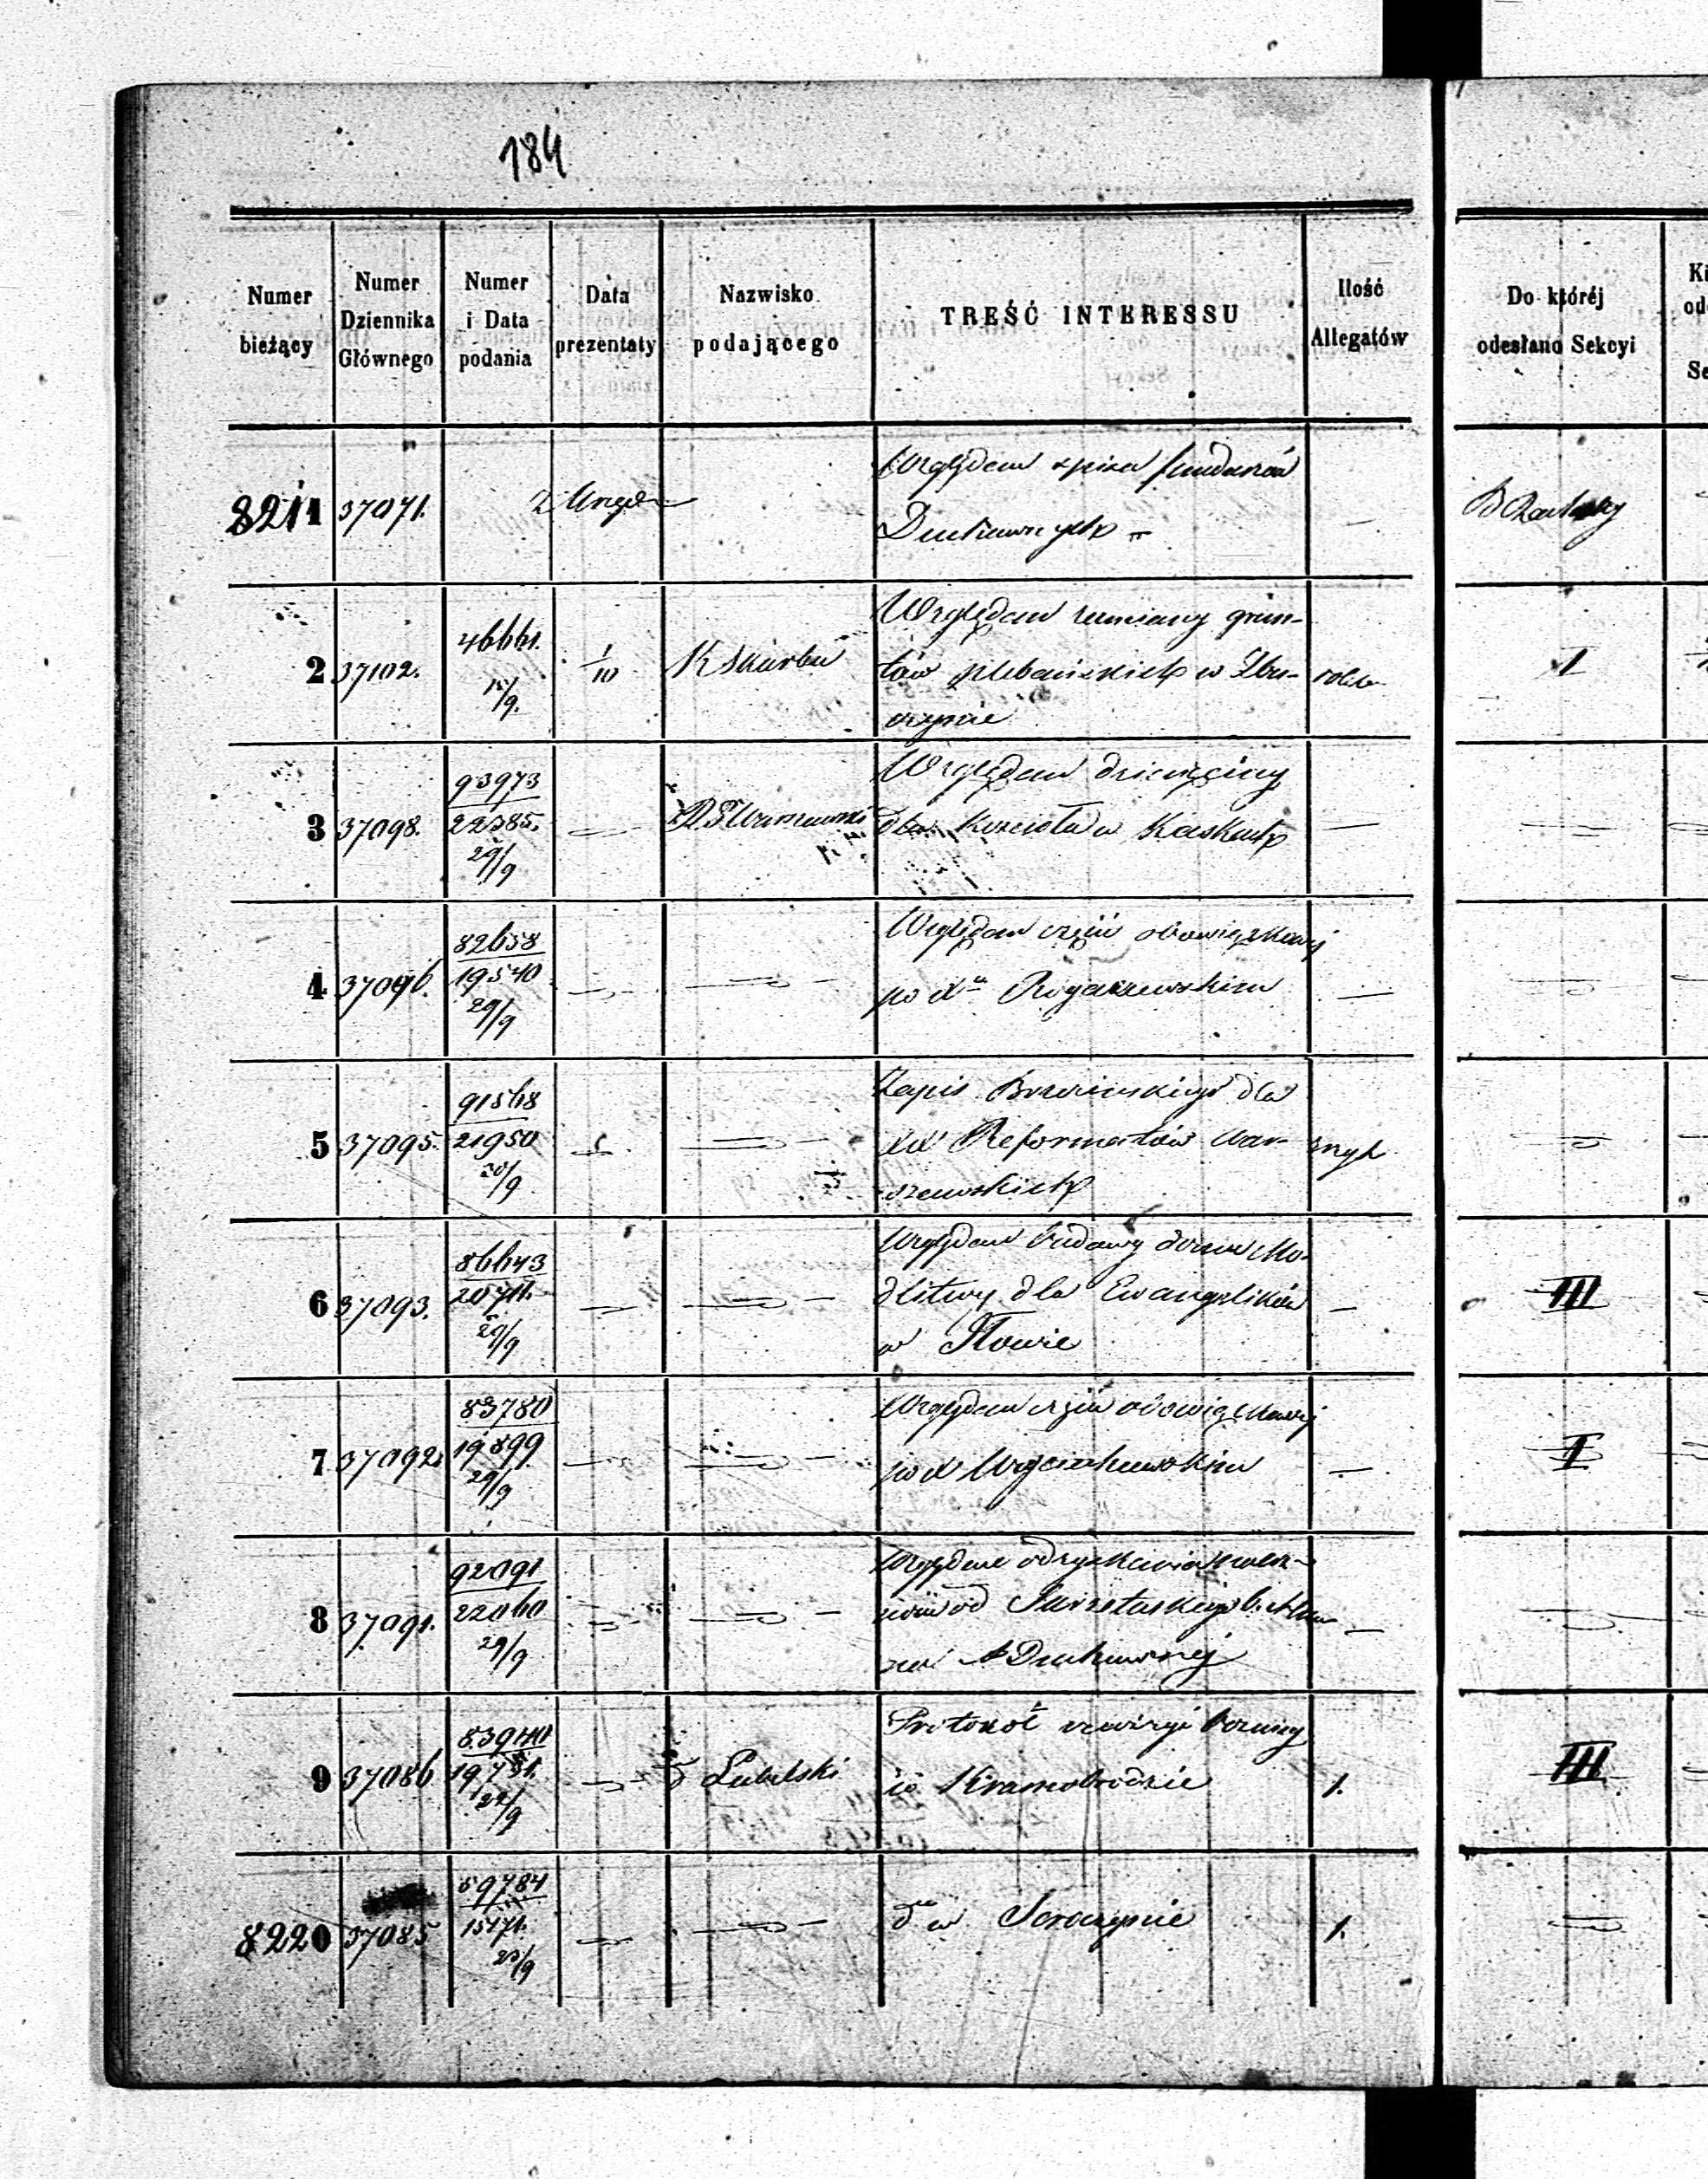 184
Numer bieżący
Numer Dziennika Głównego
Numer i Data podania
Data prezentaty
Nazwisko podającego
TREŚĆ INTERESSU
Ilość Allegatów
Do któréj odesłano Sekcyi
8211 37071. z Urzędu Względem spisu funduszów —
Duchownych
2 37102. 46661. 15/9. 1/10 K Skarbu Względem zamiany grun- I
tów plebańskich w Zbu-
czynie
3 37098. 93973 22385. 29/9 — RG Warszawski Względem dziesięciny —
dla Kościoła w Kaskach
4 37096. 82658 19540 29/9 — — Względem części obowiązkowej —
po Xu Rogaszewskim
5 37095. 91568 21950 30/9 — — Zapis Brzezińskiego dla
XX Reformatów War-
szawskich
6 37093. 86643 20711. 29/9 — — Względem budowy domu Mo- — III
dlitwy dla Ewangelików
w Iłowie
7 37092. 83780 19899 29/9 — — Względem części obowiązkowej — I
po X Wojciechowskim
8 37091. 92091 22060 29/9 — — Względem odzyskania
od
9 37086 83940 19781. 22/9 — d Lubelski Protokół rewizyi Bożnicy 1. III
w Krasnobrodzie
8220 37085 59784 15171. 23/9 — — dto w Seroczynie 1.